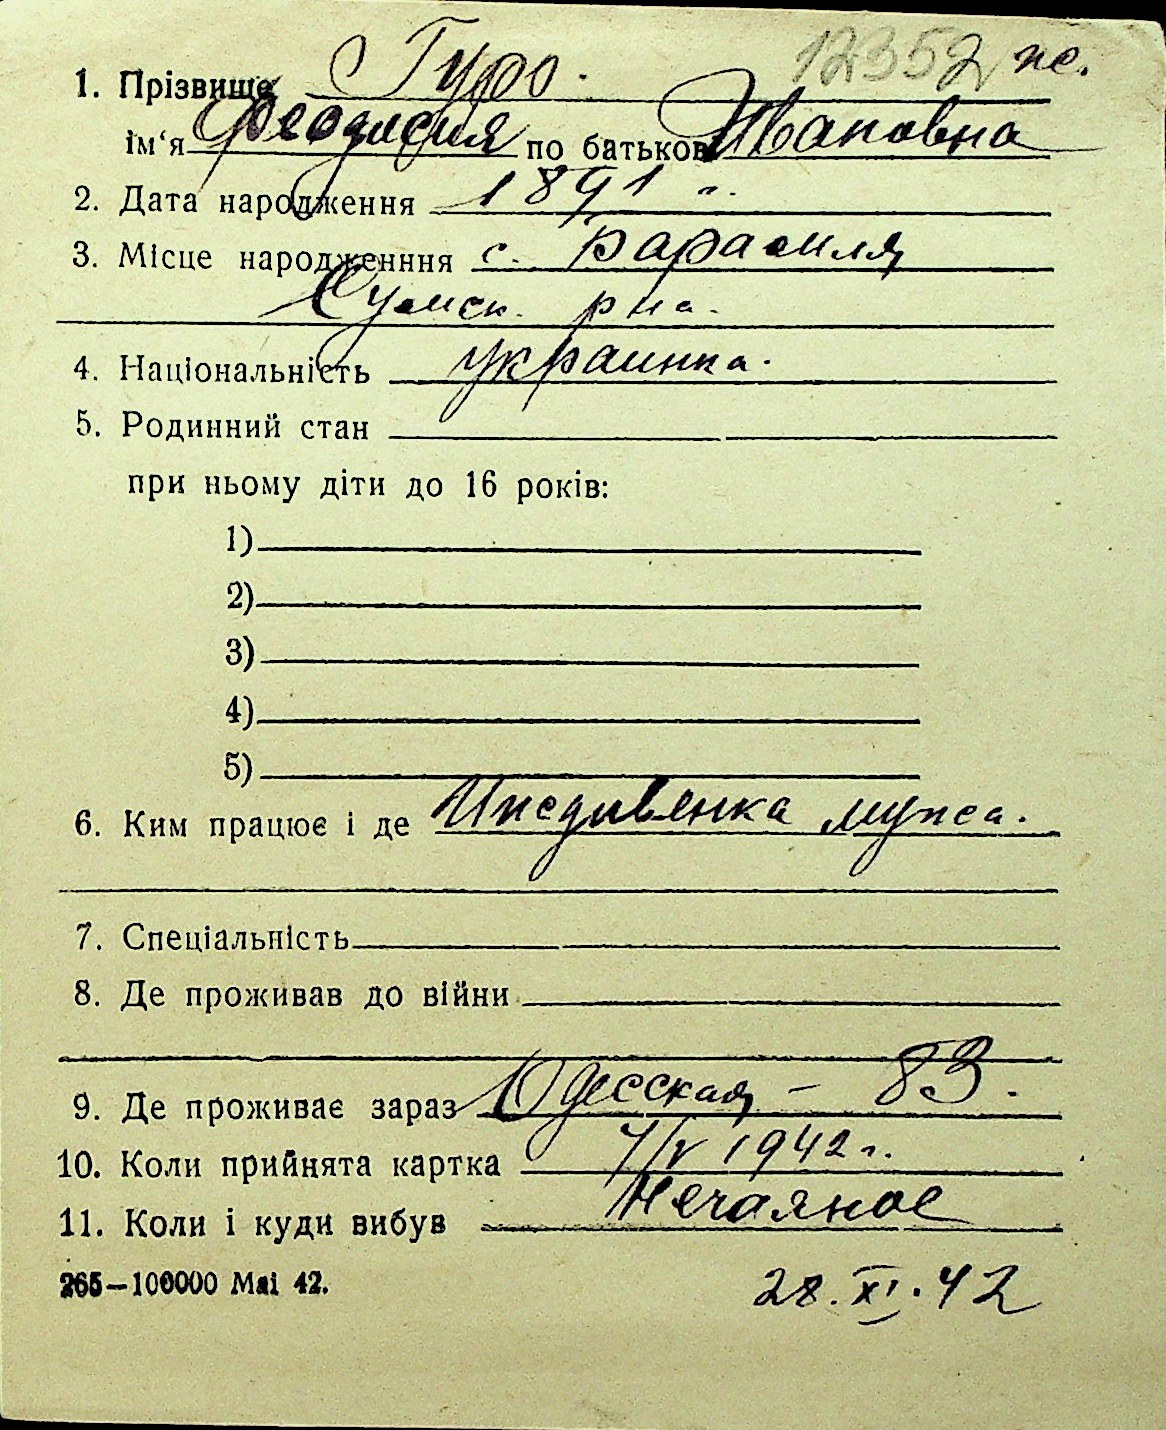 12352 ж.
1. Прізвище Гуро.
ім‘я Феодосия по батькові Ивановна
2. Дата народження 1891 г.
3. Місце народженння с.
Сумск. р на.
4. Національність украинка.
5. Родинний стан
при ньому діти до 16 років:
1)
2)
3)
4)
5)
6. Ким працює і де Иждивенка мужа.
7. Спеціальність
8. Де проживав до війни
9. Де проживає зараз Одесская – 83.
10. Коли прийнята картка 7/V 1942 г.
11. Коли і куди вибув Нечаяное
265–100000 Mai 42.
28.XI.42